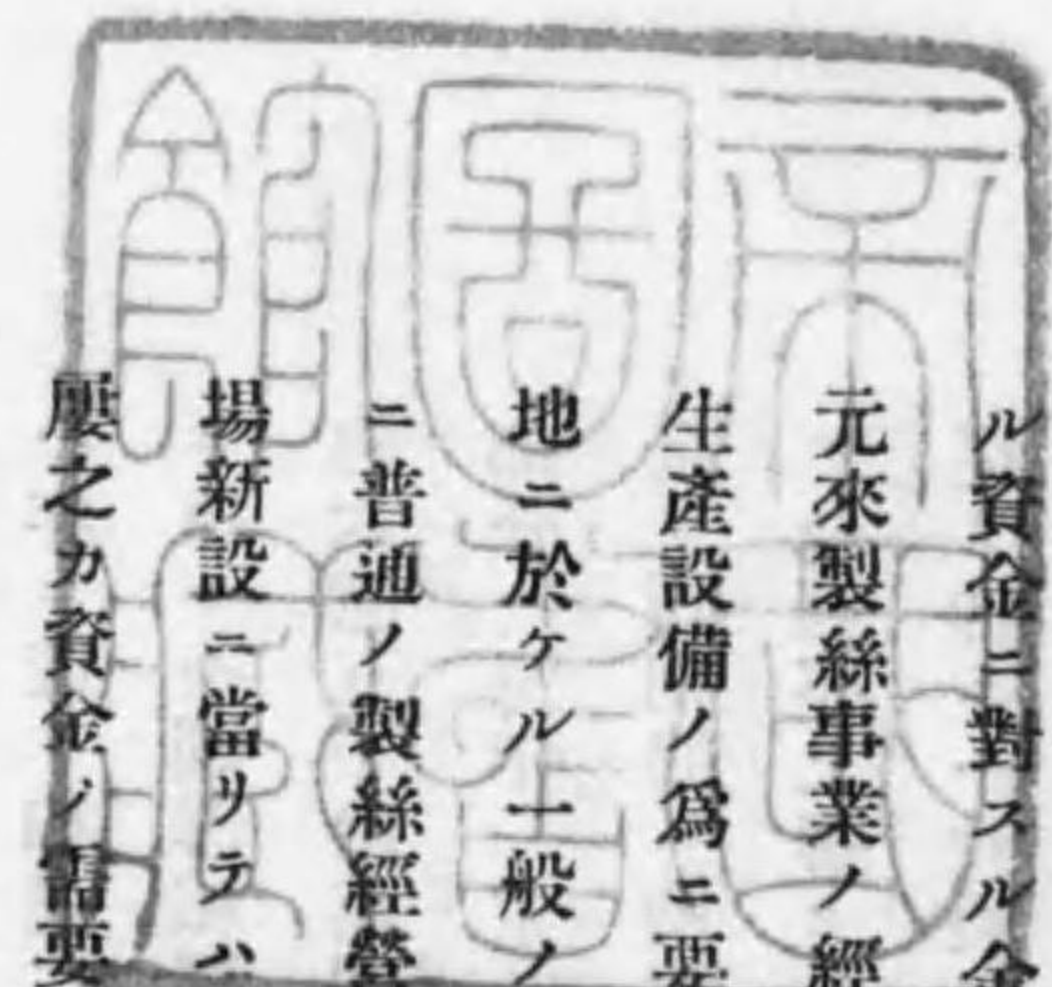 帝國圖書館藏
ル資金ニ對スル金
元來製絲事業ノ經
生產設備ノ爲ニ要
地ニ於ケル一般ノ
ニ普通ノ製絲經營
場新設ニ當リテハ
屢之カ資金ノ需要